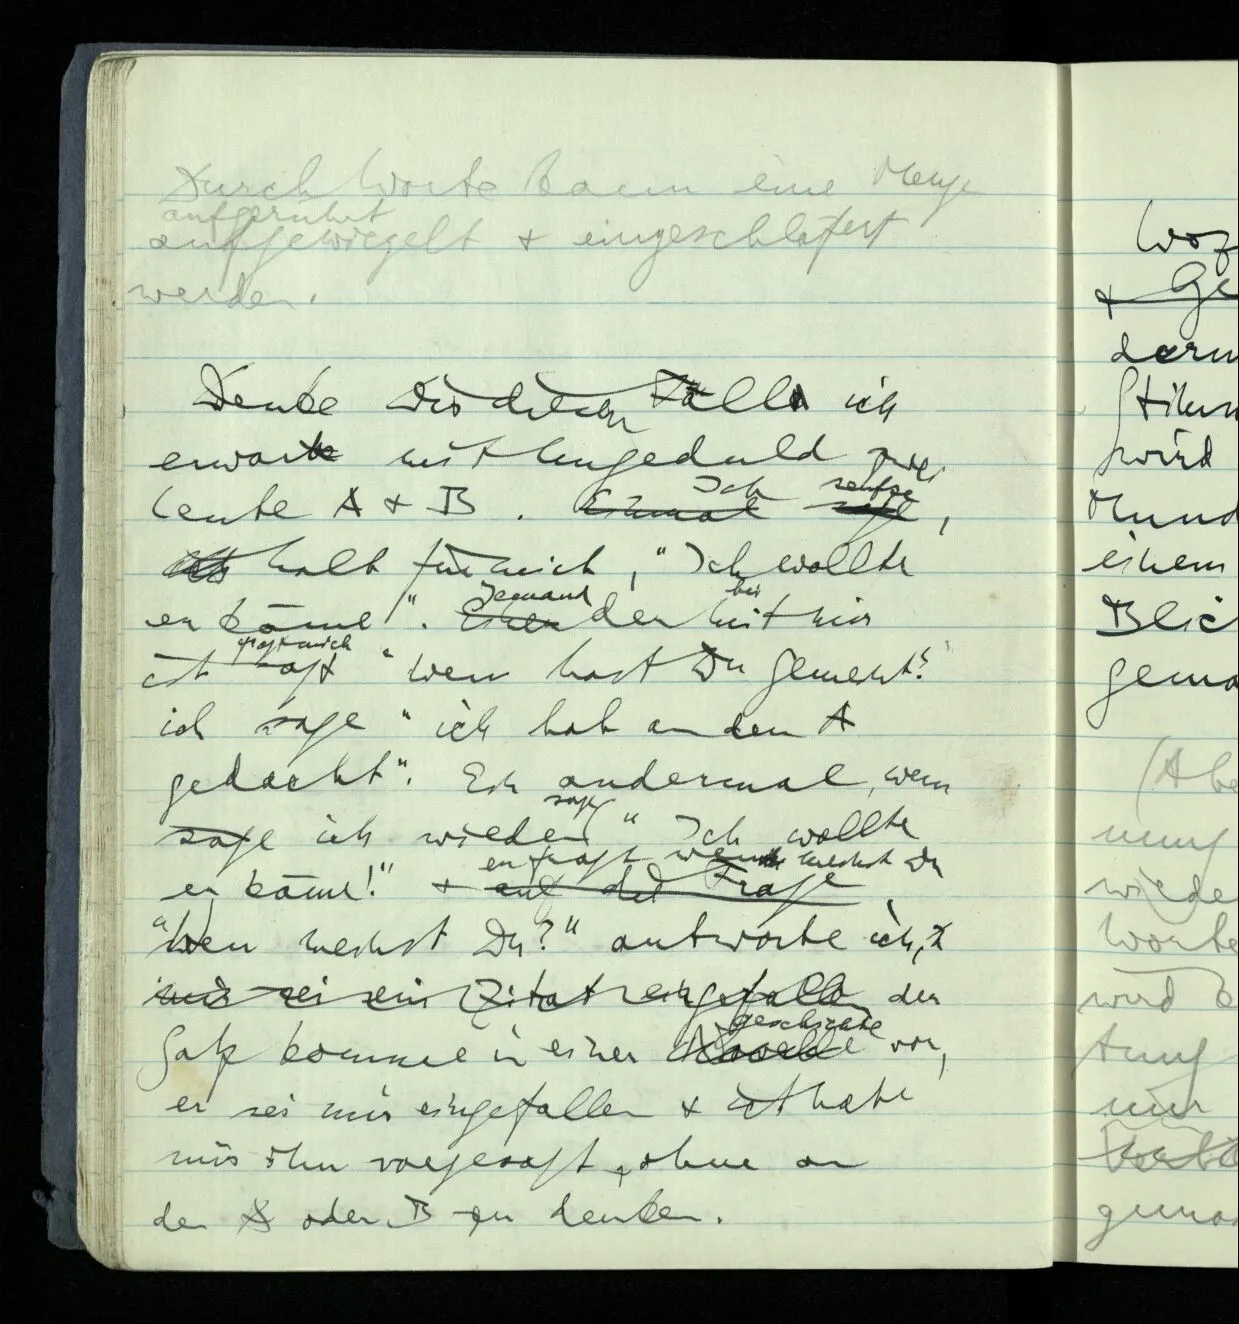 Durch Worte kann eine Menge
aufgerührt
aufgewiegelt + eingeschläfert
werden.
Denke Dir diesen Fall ich
erwarte mit Ungeduld zwei
Ich seufze
Leute A + B. Einmal sage,
halb für mich, "Ich wollte
Jemand bei
er käme". Einer der mit mir
fragt mich
ist sagt "Wen hast Du gemeint?"
ich sage "ich hab an den A
gedacht". Ein andermal, wenn
sage
sage ich wieder "Ich wollte
er fragt wen meinst Du
er käme!" + auf die Frage,
"Wen meinst Du?" antworte ich,
mir sei ein Zitat eingefallen der
geschichte
Satz komme in einer Novelle vor,
er sei mir eingefallen + ich habe
mir ihn vorgesagt, ohne an
den A oder B zu denken.
+ Ge
wird
Mund
einem
Blic
gema
(Abe
wiede
Worte
wird
nur